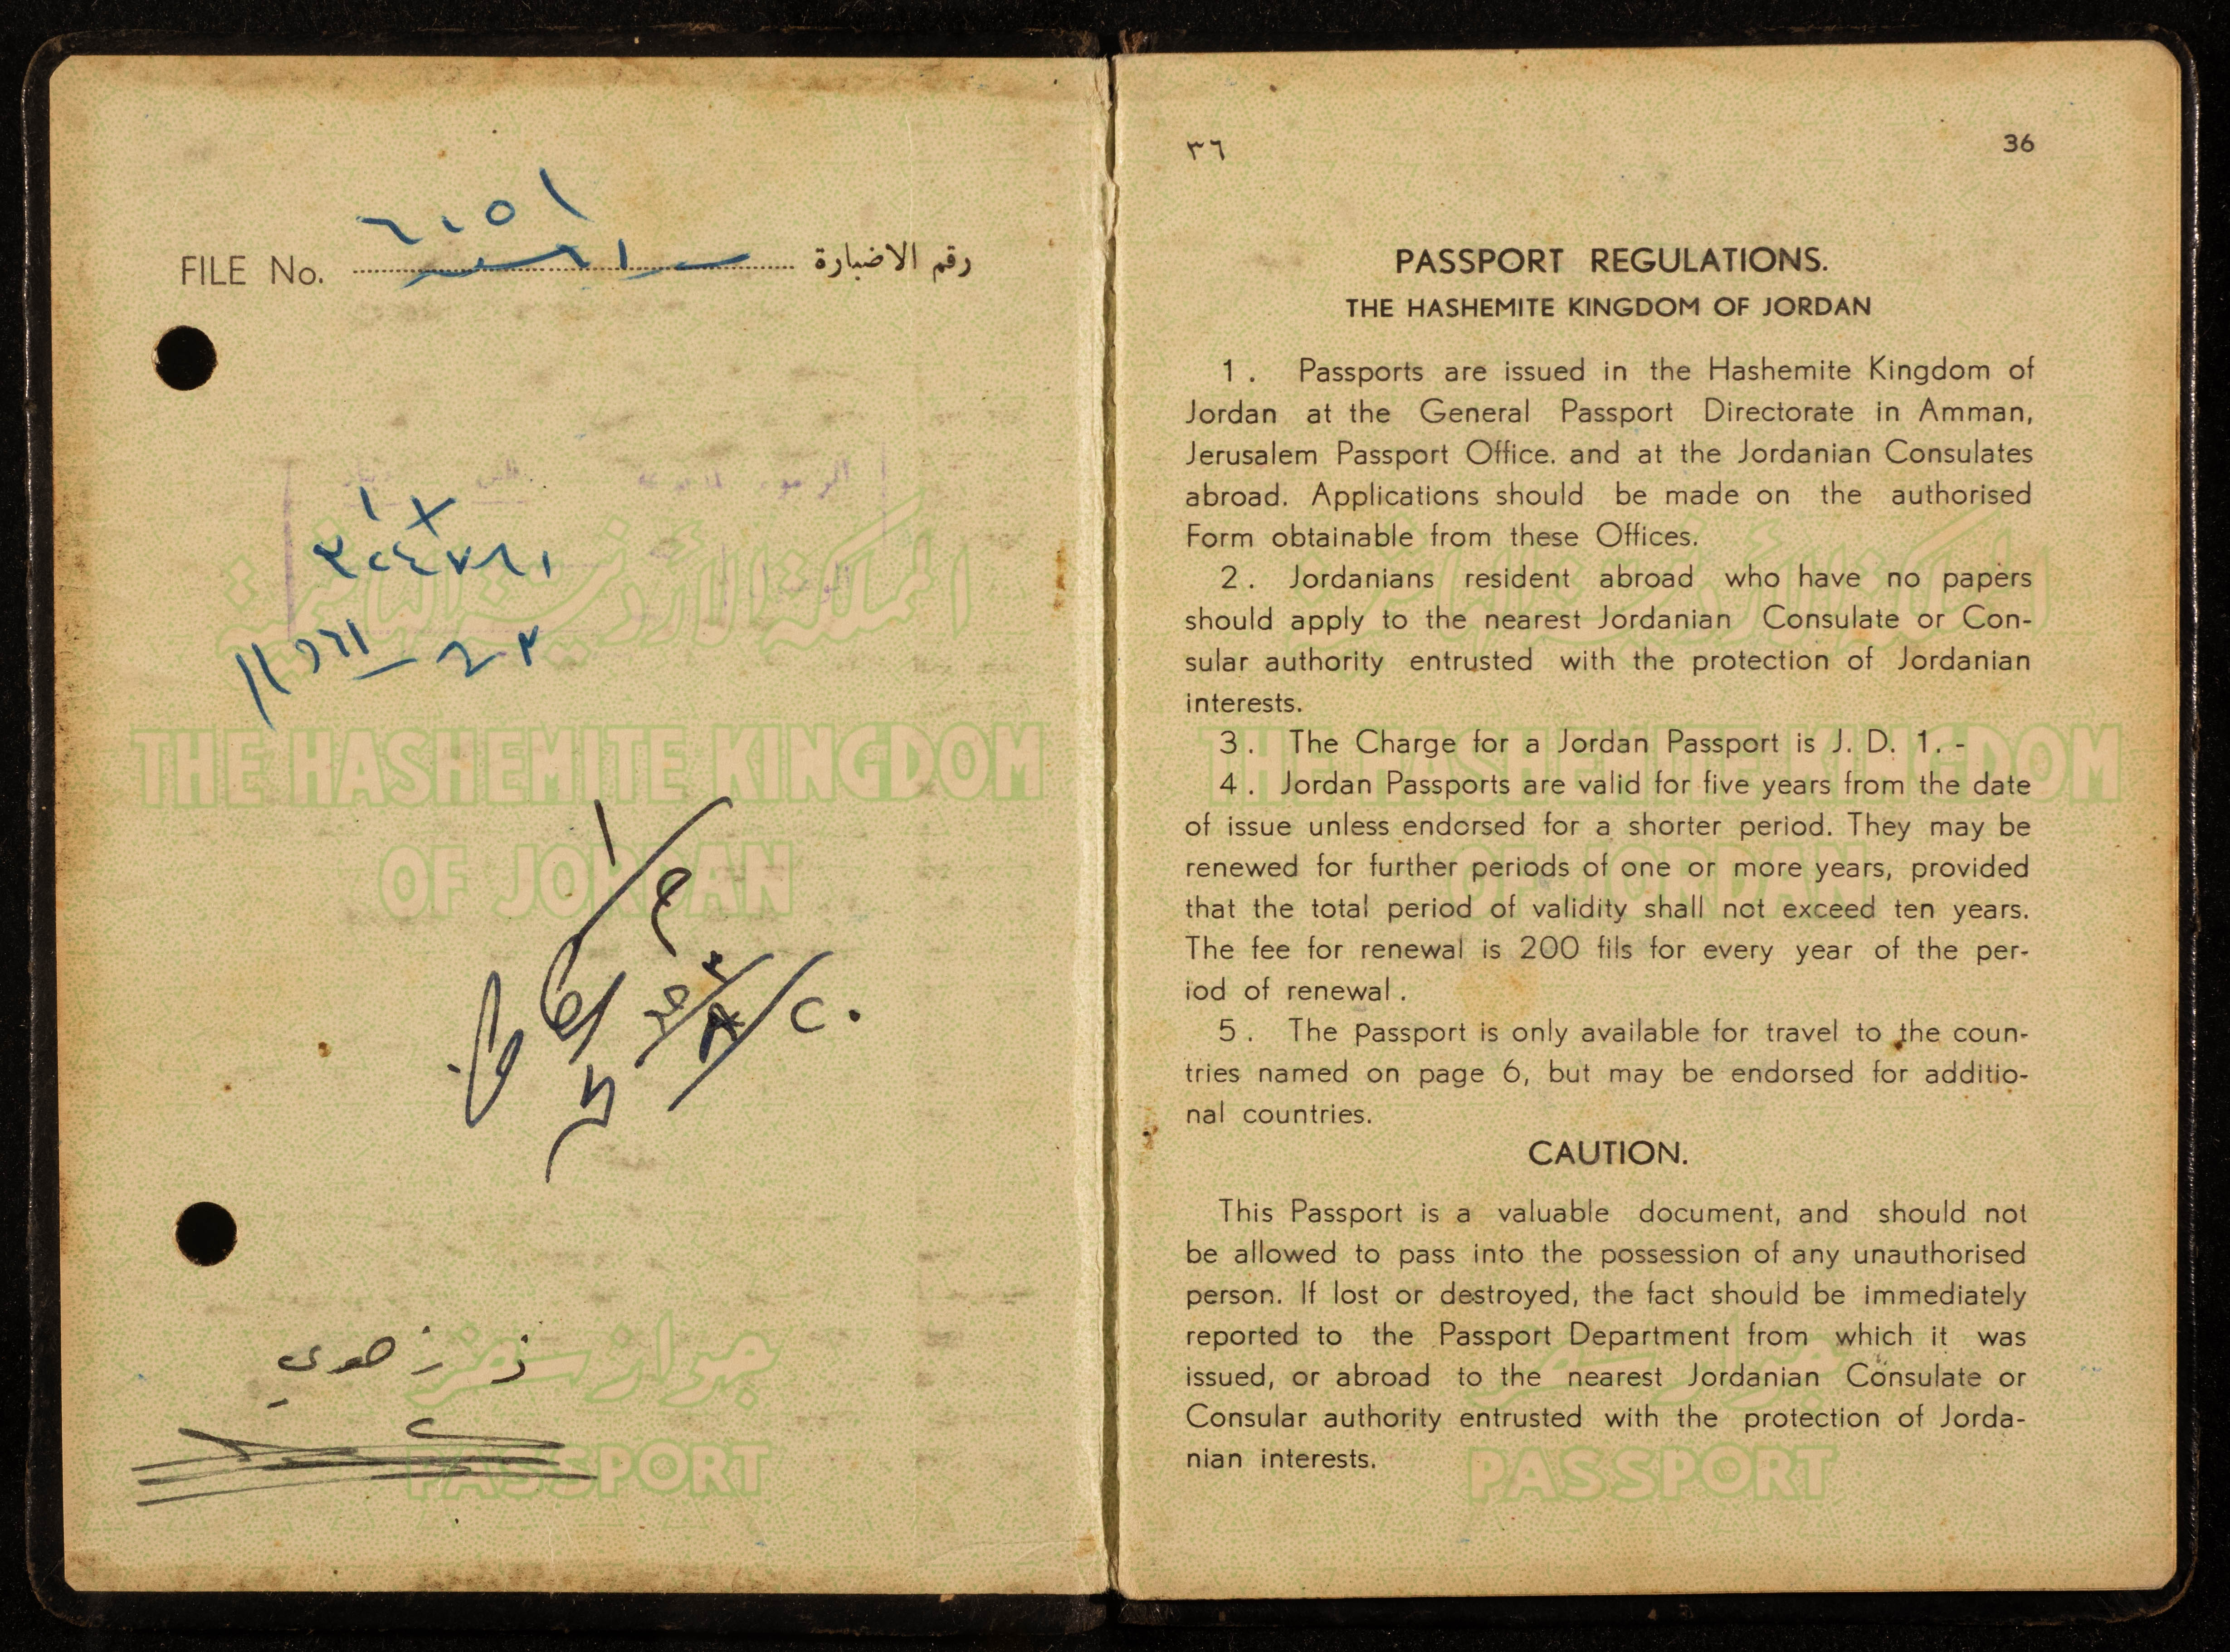 FILE No. رقم الاضبارة
٦١٥١
المملكة الأردنية الهاشمية
THE HASHEMITE KINGDOM
OF JORDAN
جواز سفر
PASSPORT
٣٦ 36
PASSPORT REGULATIONS.
THE HASHEMITE KINGDOM OF JORDAN
1. Passports are issued in the Hashemite Kingdom of
Jordan at the General Passport Directorate in Amman,
Jerusalem Passport Office. and at the Jordanian Consulates
abroad. Applications should be made on the authorised
Form obtainable from these Offices.
2. Jordanians resident abroad who have no papers
should apply to the nearest Jordanian Consulate or Con-
sular authority entrusted with the protection of Jordanian
interests.
3. The Charge for a Jordan Passport is J. D. 1. -
4. Jordan Passports are valid for five years from the date
of issue unless endorsed for a shorter period. They may be
renewed for further periods of one or more years, provided
that the total period of validity shall not exceed ten years.
The fee for renewal is 200 fils for every year of the per-
iod of renewal.
5. The Passport is only available for travel to the coun-
tries named on page 6, but may be endorsed for additio-
nal countries.
CAUTION.
This Passport is a valuable document, and should not
be allowed to pass into the possession of any unauthorised
person. If lost or destroyed, the fact should be immediately
reported to the Passport Department from which it was
issued, or abroad to the nearest Jordanian Consulate or
Consular authority entrusted with the protection of Jorda-
nian interests.
THE HASHEMITE KINGDOM
OF JORDAN
PASSPORT